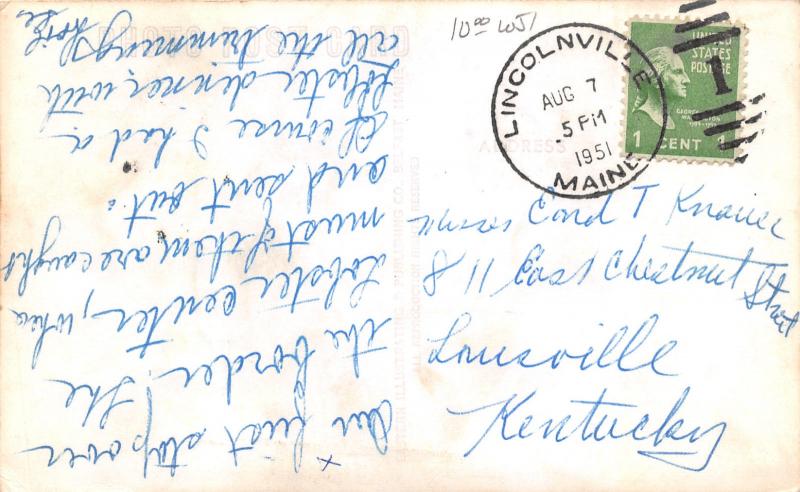 Our first stop over
the border. The
Lobster center, when
most of them are caught
and sent out.
Of course I had a
Lobster dinner with
all the trimmings
Lois
10.00 WJ1
LINCOLNVILLE
AUG 7
5 PM
1951
MAINE
UNITED
STATES
POSTAGE
1 CENT 1
PHOTO POST CARD
ADDRESS
T Knauer
811 East Chestnut
Street
Louisville
Kentucky